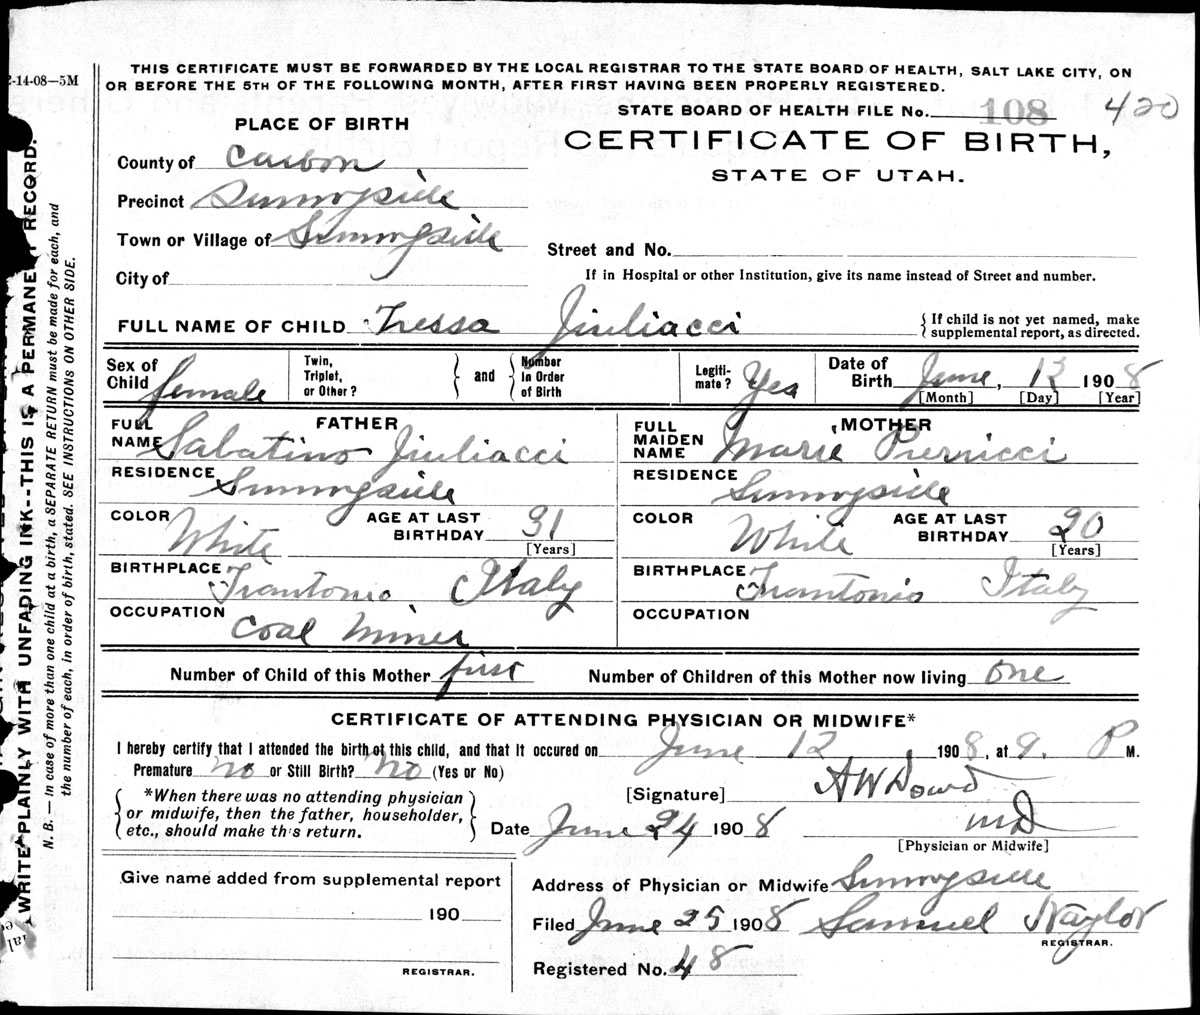 2-14-08—5M
THIS CERTIFICATE MUST BE FORWARDED BY THE LOCAL REGISTRAR TO THE STATE BOARD OF HEALTH, SALT LAKE CITY, ON
OR BEFORE THE 5TH OF THE FOLLOWING MONTH, AFTER FIRST HAVING BEEN PROPERLY REGISTERED.
STATE BOARD OF HEALTH FILE No. 108 420
PLACE OF BIRTH
CERTIFICATE OF BIRTH,
STATE OF UTAH.
County of Carbon
Precinct Sunnyside
Town or Village of Sunnyside
Street and No.
City of
If in Hospital or other Institution, give its name instead of Street and number.
FULL NAME OF CHILD Tressa Jiuliacci
{ If child is not yet named, make
supplemental report, as directed.
Sex of Child female
Twin, Triplet, or Other? } and { Number in Order of Birth
Legiti-mate? Yes
Date of Birth June, 12 1908
[Month] [Day] [Year]
FATHER
FULL NAME Sabatino Jiuliacci
RESIDENCE Sunnyside
COLOR White AGE AT LAST BIRTHDAY 31 [Years]
BIRTHPLACE Frantonio Italy
OCCUPATION Coal Miner
MOTHER
FULL MAIDEN NAME Marie Pierucci
RESIDENCE Sunnyside
COLOR White AGE AT LAST BIRTHDAY 20 [Years]
BIRTHPLACE Frantonio Italy
OCCUPATION
Number of Child of this Mother first Number of Children of this Mother now living one
CERTIFICATE OF ATTENDING PHYSICIAN OR MIDWIFE*
I hereby certify that I attended the birth of this child, and that it occured on June 12 1908, at 9. P M.
Premature no or Still Birth? no (Yes or No)
{ *When there was no attending physician
or midwife, then the father, householder,
etc., should make this return. }
[Signature] A W Dowd
Date June 24 1908 MD
[Physician or Midwife]
Give name added from supplemental report
190
REGISTRAR.
Address of Physician or Midwife Sunnyside
Filed June 25 1908 Samuel Naylor
REGISTRAR.
Registered No. 48
WRITE PLAINLY WITH UNFADING INK--THIS IS A PERMANENT RECORD.
N. B. — In case of more than one child at a birth, a SEPARATE RETURN must be made for each, and
the number of each, in order of birth, stated. SEE INSTRUCTIONS ON OTHER SIDE.